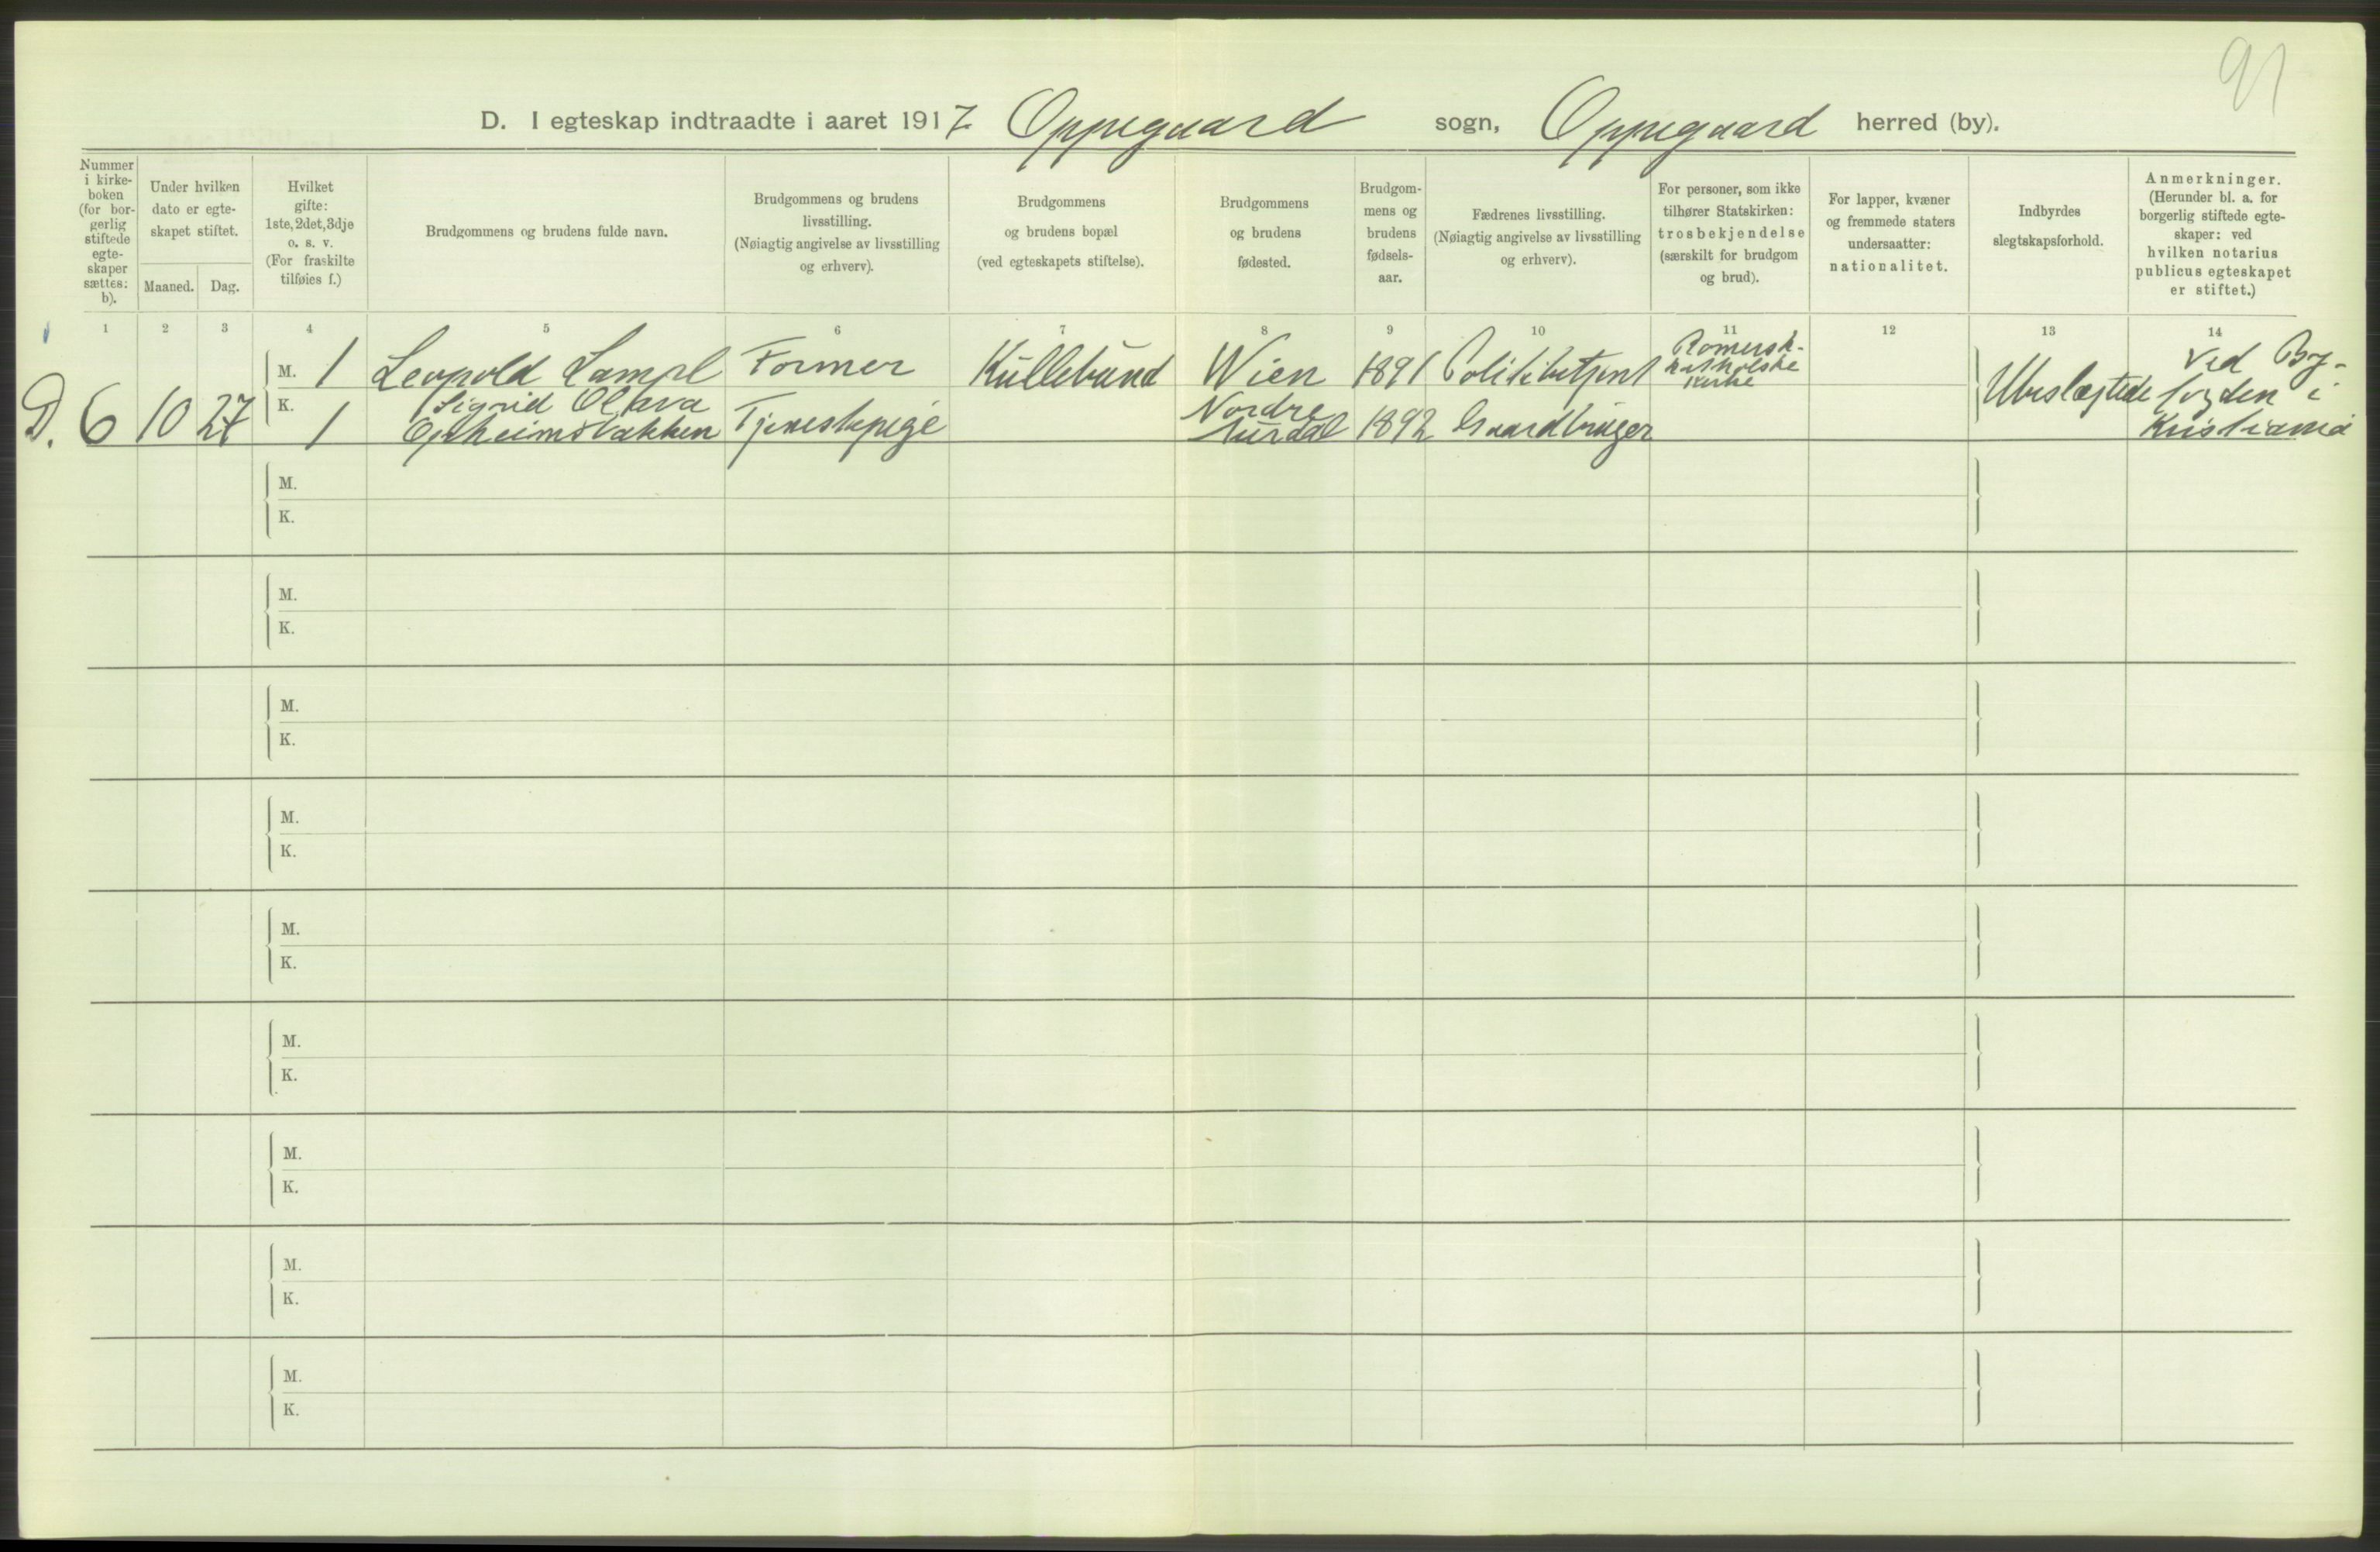 91
D. I egteskap indtraadte i aaret 1917 Oppegaard sogn, Oppegaard herred (by).
Nummer
i kirke-
boken
(for bor-
gerlig
stiftede
egte-
skaper
sættes:
b).
Under hvilken
dato er egte-
skapet stiftet.
Maaned.
Dag.
Hvilket
gifte:
1ste, 2det, 3dje
o. s. v.
(For fraskilte
tilføies f.)
Brudgommens og brudens fulde navn.
Brudgommens og brudens
livsstilling.
(Nøiagtig angivelse av livsstilling
og erhverv).
Brudgommens
og brudens bopæl
(ved egteskapets stiftelse).
Brudgommens
og brudens
fødested.
Brudgom-
mens og
brudens
fødsels-
aar.
Fædrenes livsstilling.
(Nøiagtig angivelse av livsstilling
og erhverv).
For personer, som ikke
tilhører Statskirken:
trosbekjendelse
(særskilt for brudgom
og brud).
For lapper, kvæner
og fremmede staters
undersaatter:
nationalitet.
Indbyrdes
slegtskapsforhold.
Anmerkninger.
(Herunder bl. a. for
borgerlig stiftede egte-
skaper: ved
hvilken notarius
publicus egteskapet
er stiftet.)
1 2 3 4 5 6 7 8 9 10 11 12 13 14
D. 6 10 27
M. 1 Leopold Lampl Former Kullebund Wien 1891 Politibetjent
Romersk-
katholske
Kirke
K. 1
Sigrid Olava
Opheimsbakken
Tjenestepige
Nordre
Aurdal
1892 Gaardbruger
Ubeslægtede
Ved By-
fogden i
Kristiania
M.
K.
M.
K.
M.
K.
M.
K.
M.
K.
M.
K.
M.
K.
M.
K.
M.
K.